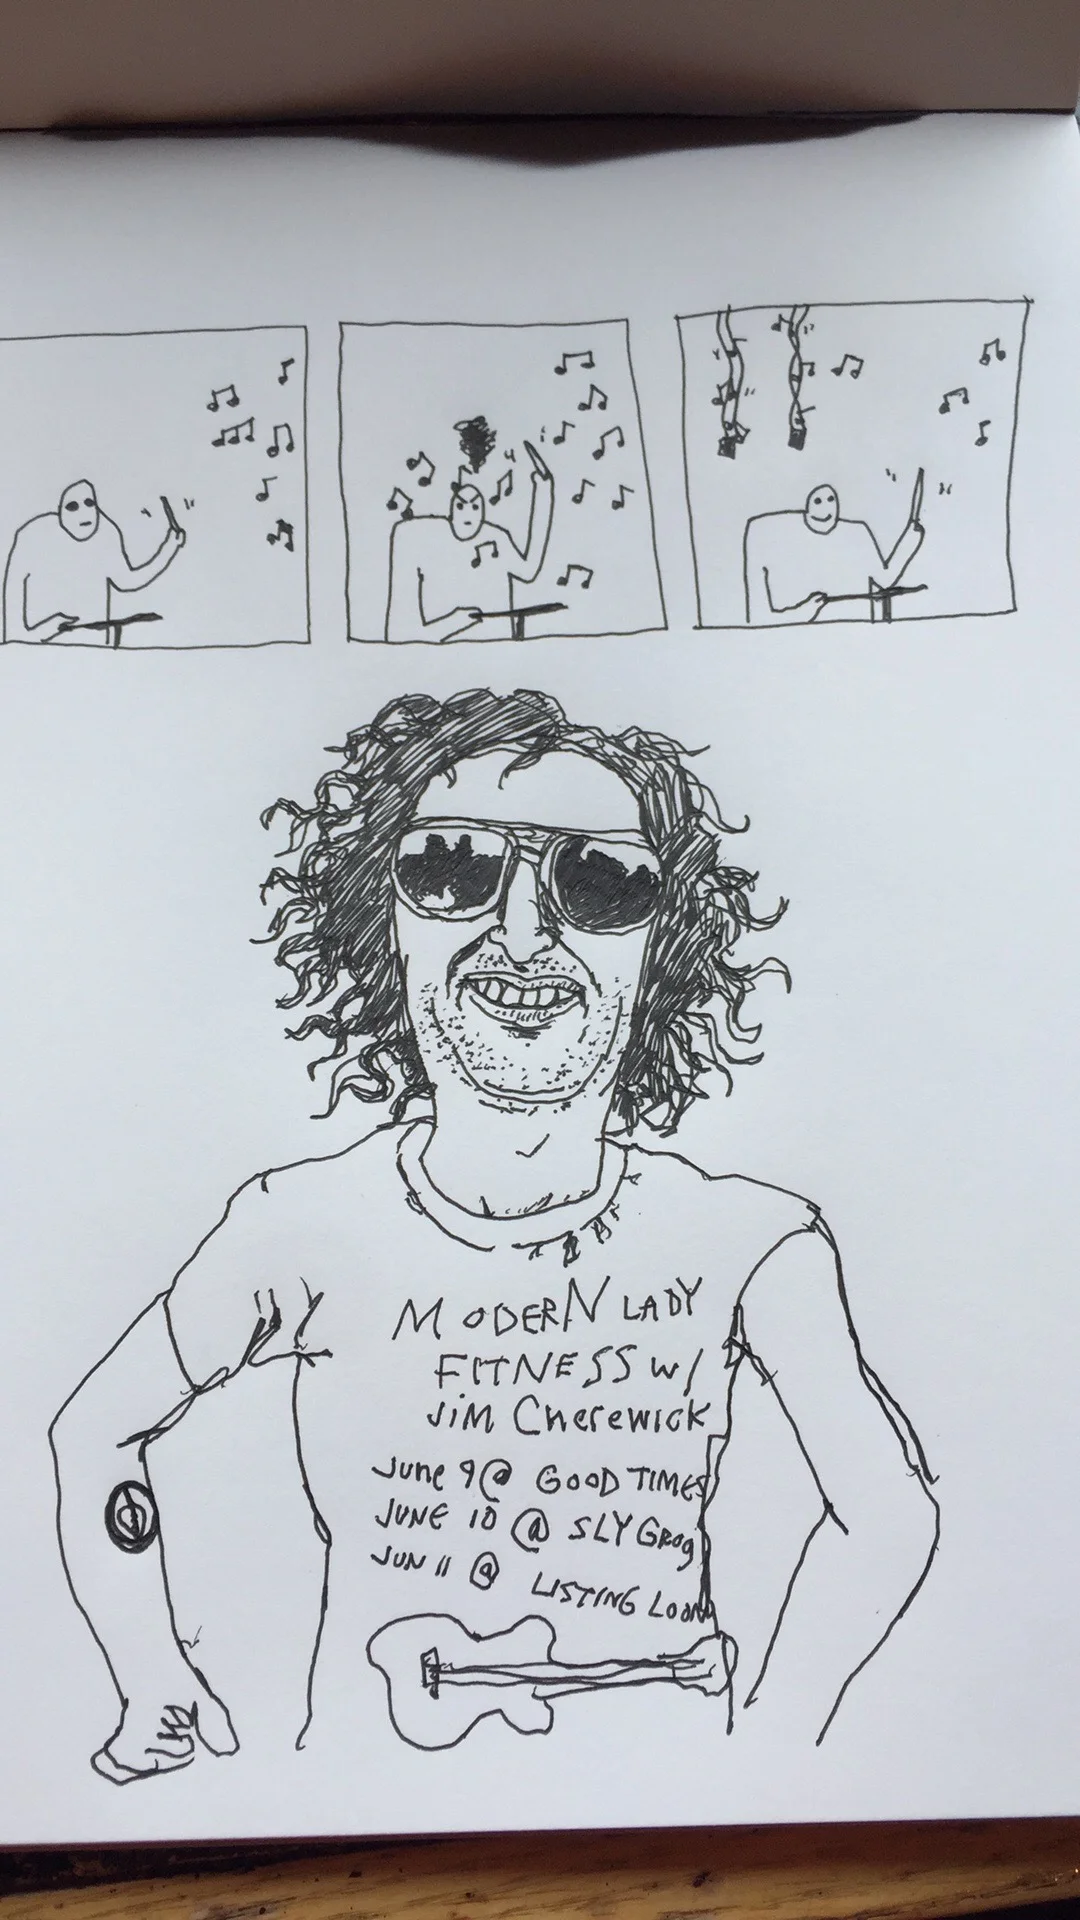 MODERN LADY
FITNESS W/
JiM Cherewick
June 9 @ GOOD TIMES
JUNE 10 @ SLY GROG
JUN 11 @ LISTING LOON